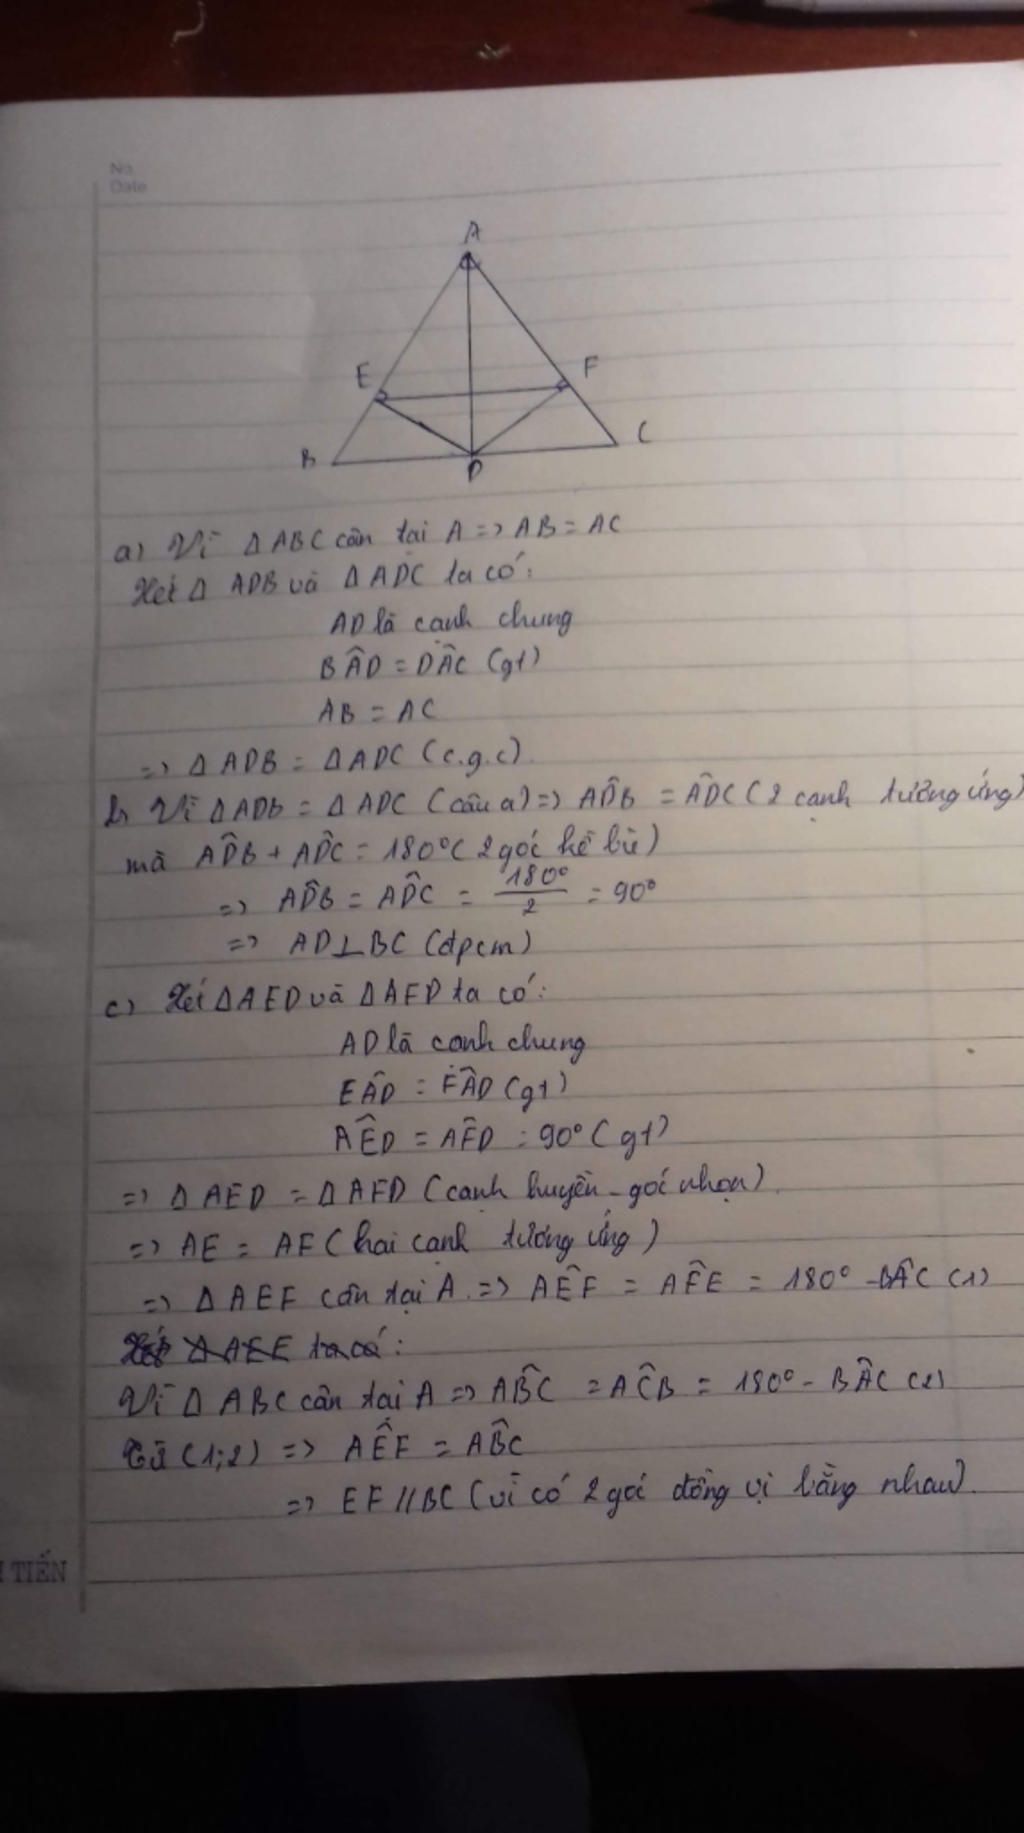 No.
Date
A
E
F
B
D
C
a) Vì ΔABC cân tại A => AB = AC
Xét Δ ADB và ΔADC ta có:
AD là cạnh chung
BÂD = DÂC (gt)
AB = AC
=> ΔADB = ΔADC (c.g.c)
b, Vì ΔADB = ΔADC (câu a) => AD̂B = AD̂C (2 cạnh tương ứng)
mà AD̂B + AD̂C = 180° (2 góc kề bù)
=> AD̂B = AD̂C = 180°/2 = 90°
=> AD⊥BC (đpcm)
c) Xét ΔAED và ΔAFD ta có:
AD là cạnh chung
EÂD = FÂD (gt)
AÊD = AF̂D = 90° (gt)
=> ΔAED = ΔAFD (cạnh huyền - góc nhọn).
=> AE = AF (hai cạnh tương ứng)
=> ΔAEF cân tại A. => AÊF = AF̂E = 180° - BÂC (1)
Xét ΔAEE ta có:
Vì ΔABC cân tại A => AB̂C = AĈB = 180° - BÂC (2)
Từ (1;2) => AÊF = AB̂C
=> EF//BC (vì có 2 góc đồng vị bằng nhau).
TIẾN